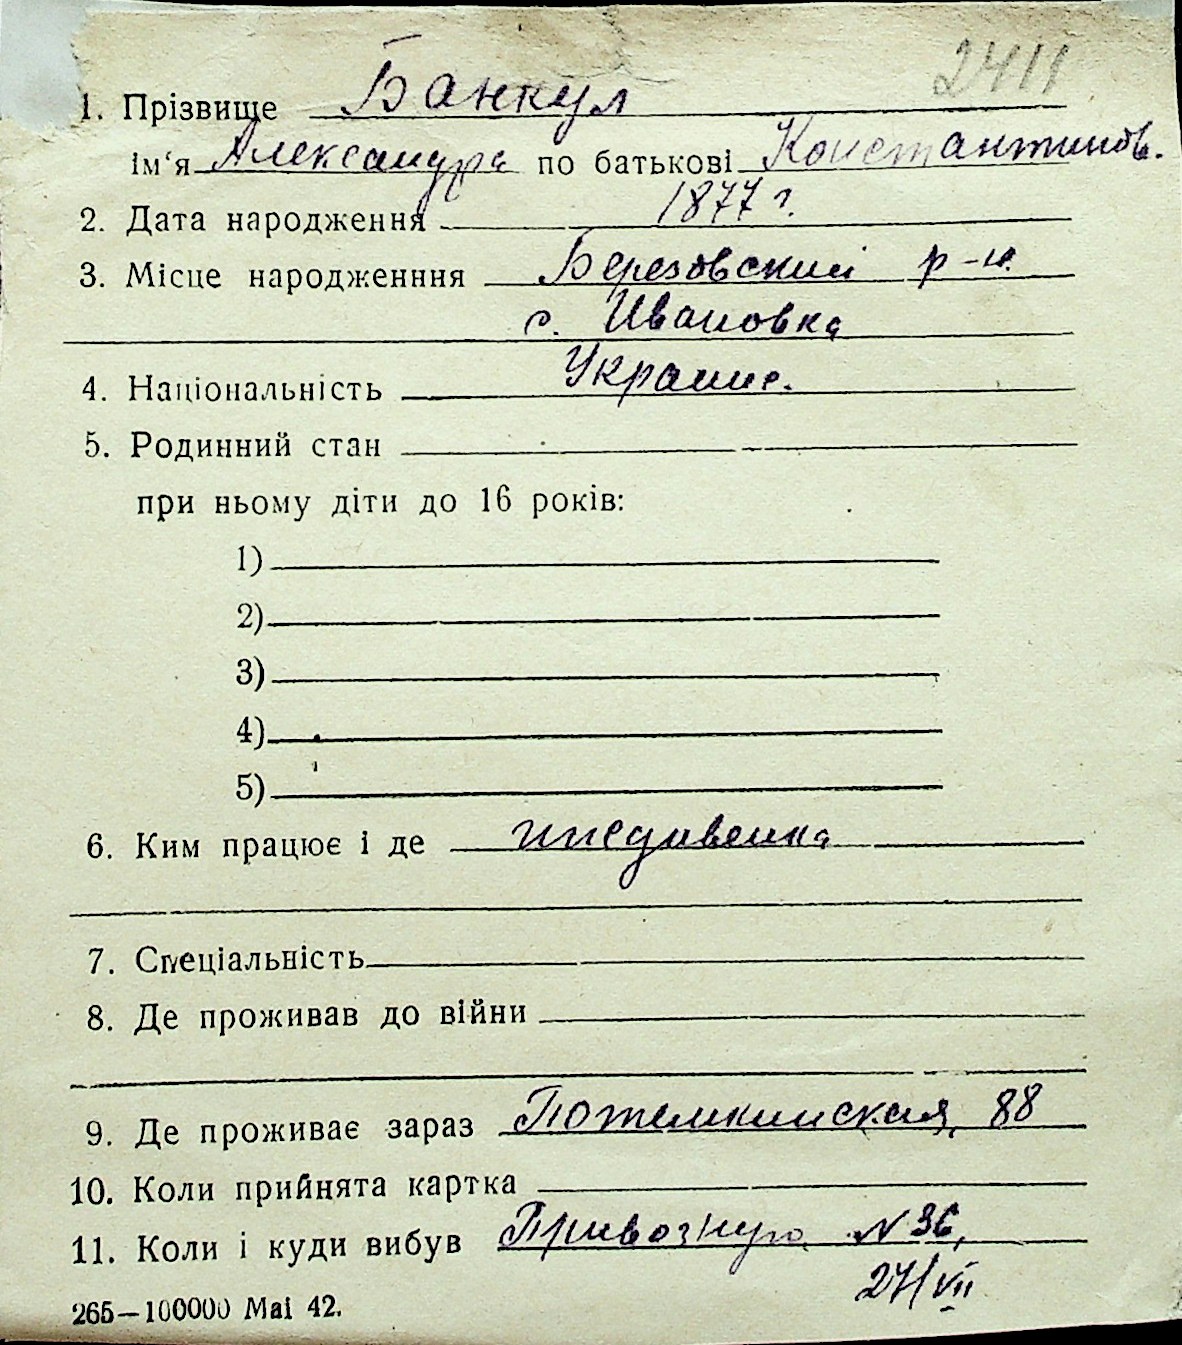 2411
1. Прізвище Банкул
ім'я Александра по батькові Константинов.
2. Дата народження 1877 г.
3. Місце народженння Березовский р-н.
с. Ивановка
4. Національність Украине.
5. Родинний стан
при ньому діти до 16 років:
1)
2)
3)
4)
5)
6. Ким працює і де иждивенка
7. Спеціальність
8. Де проживав до війни
9. Де проживає зараз Потемкинская, 88
10. Коли прийнята картка
11. Коли і куди вибув Привозную N 36,
27/VII
265—100000 Mai 42.